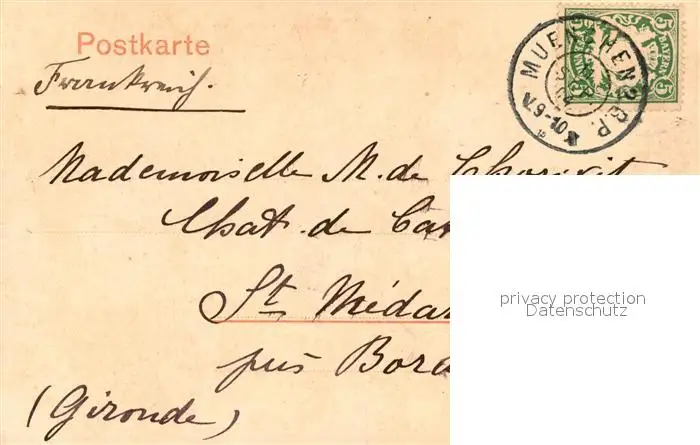 Postkarte
Frankreich.
MUENCHEN 2 B.P.
V. 9-10
BAYERN
5 5
Mademoiselle M. de
Chat. de Car
St Médar
près Bord
(Gironde)
privacy protection
Datenschutz